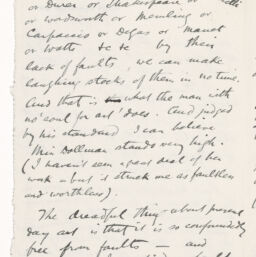 or Durer or Shakespeare or
or Wordsworth or Memling or
Carpaccio or Degas or Manet
or Watts &c &c by their
lack of faults, we can make
laughing stocks of them in no time.
And that is what the man with
no 'soul for art' does. And judged
by his standard I can believe
Miss Dollman stands very high.
(I haven't seen a good deal of her
work - but it struck me as faultless
and worthless).
The dreadful thing about present
day art is that it is so confoundedly
free from faults - and